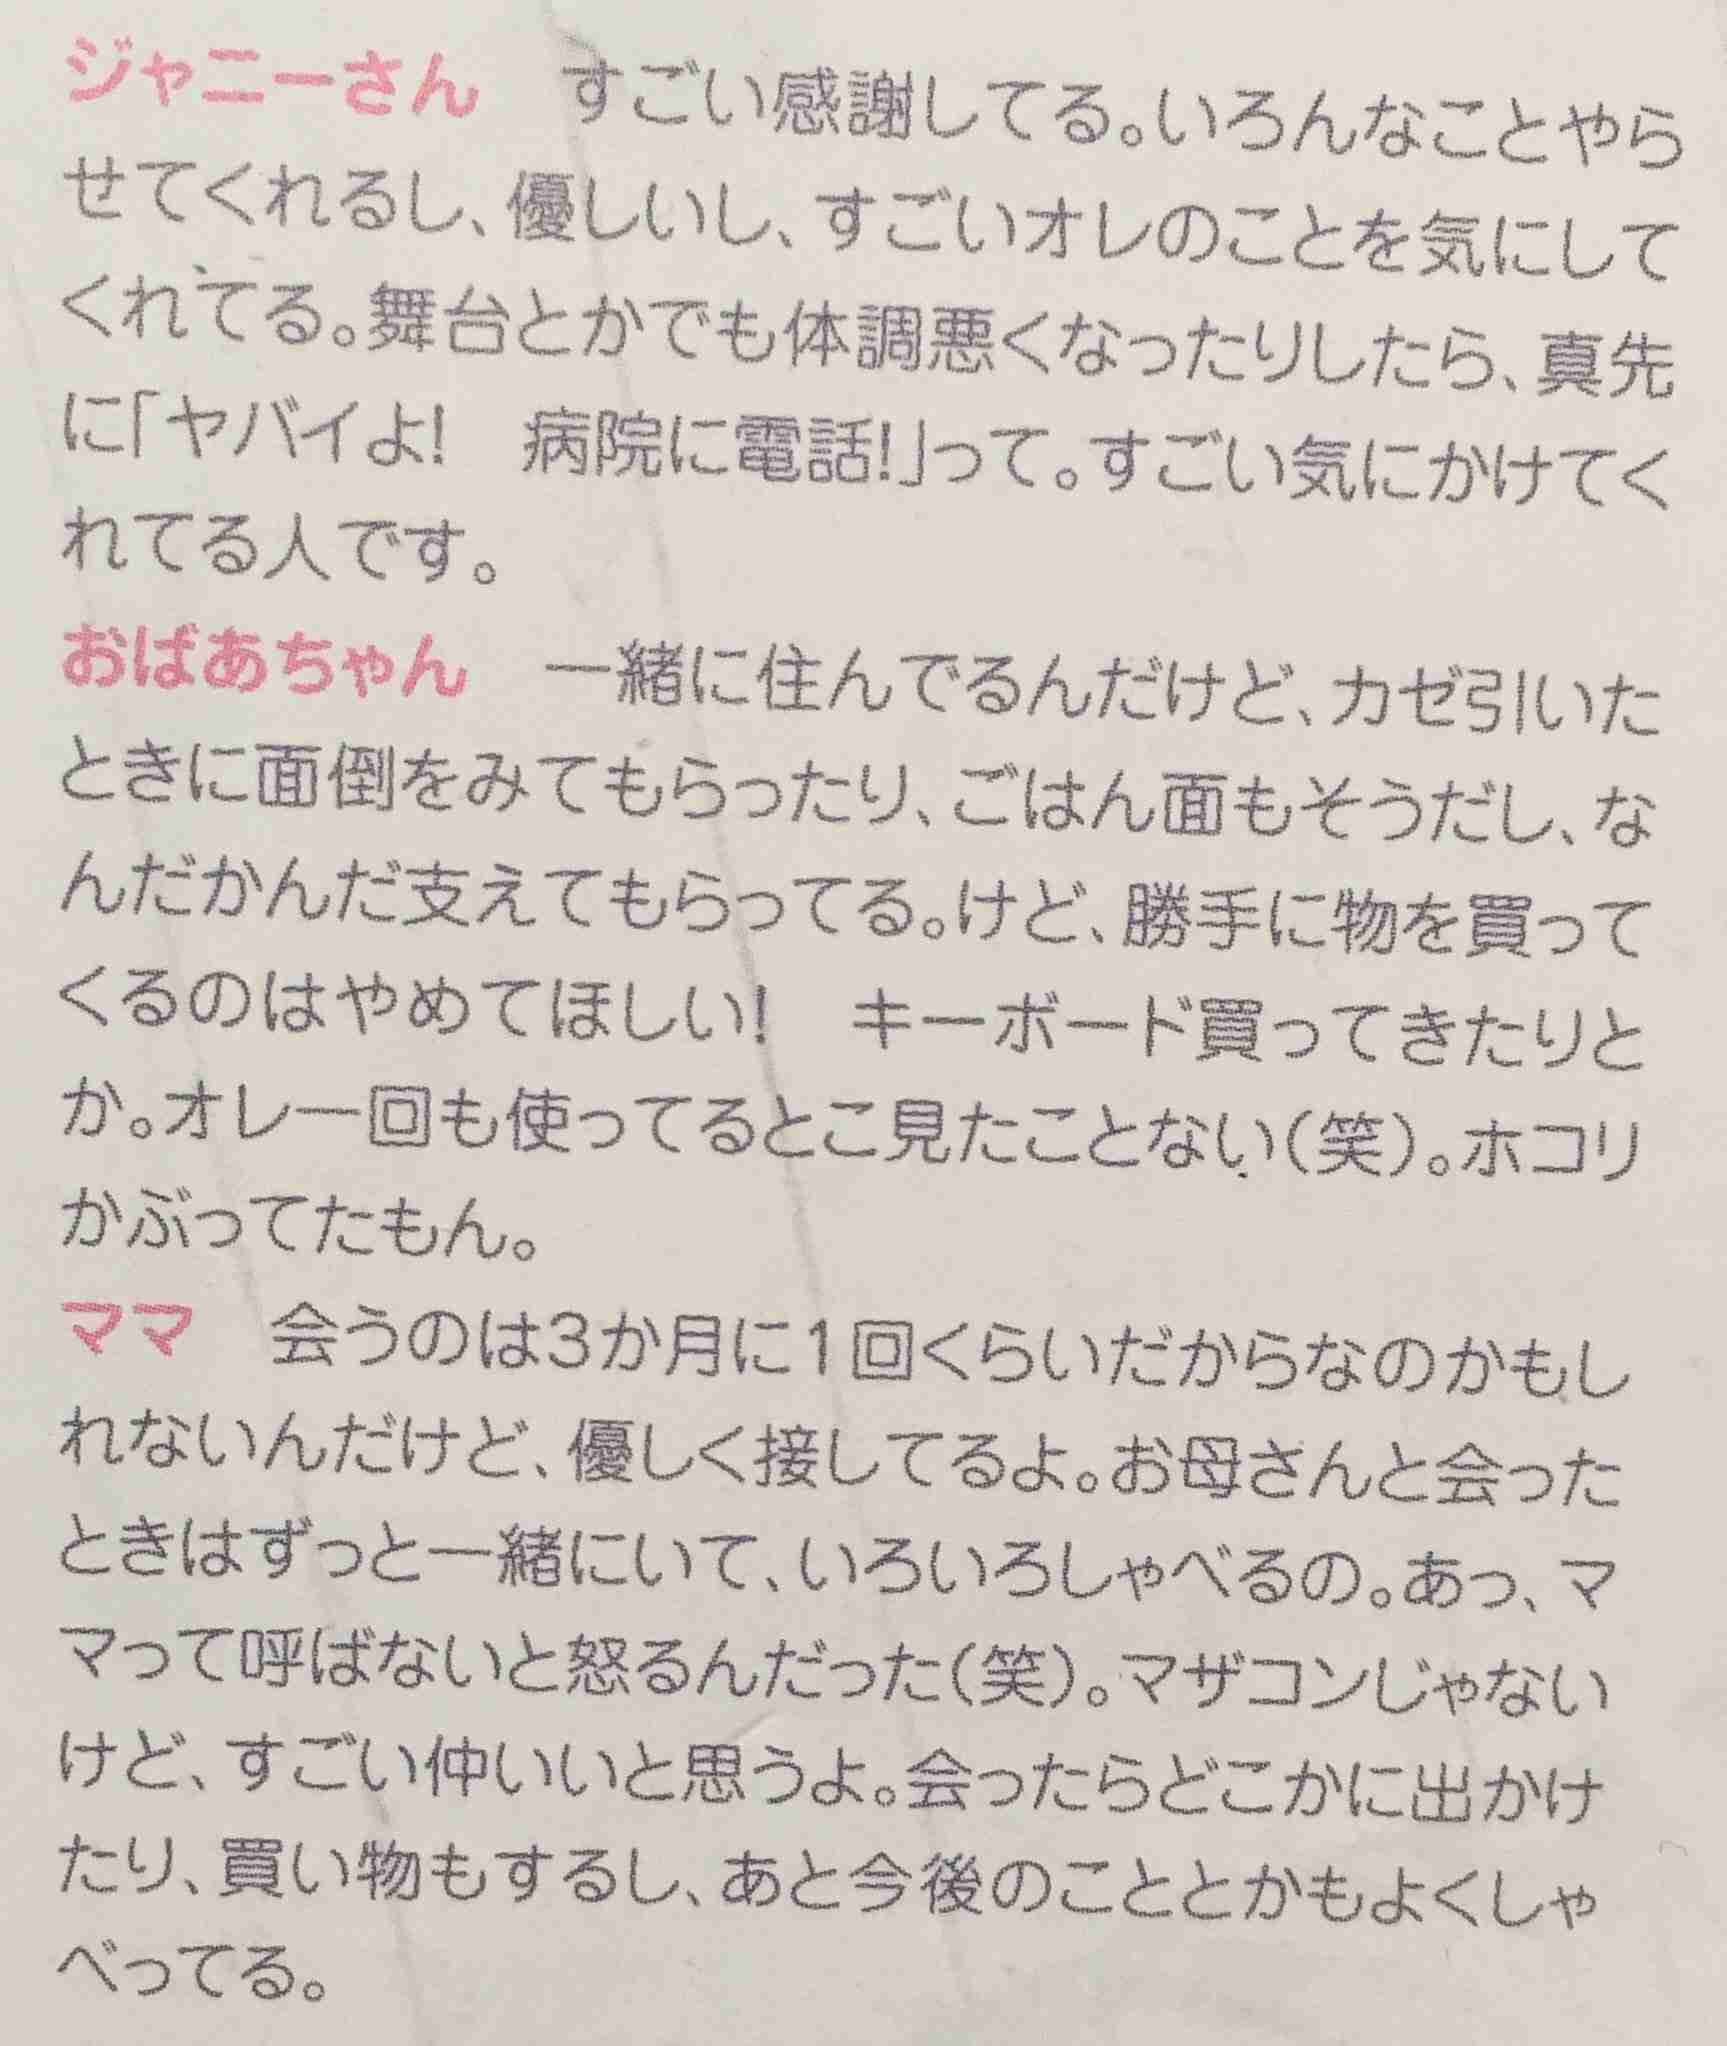 ジャニーさん　すごい感謝してる。いろんなことやら
せてくれるし、優しいし、すごいオレのことを気にして
くれてる。舞台とかでも体調悪くなったりしたら、真先
に「ヤバイよ!　病院に電話!」って。すごい気にかけてく
れてる人です。
おばあちゃん　一緒に住んでるんだけど、カゼ引いた
ときに面倒をみてもらったり、ごはん面もそうだし、な
んだかんだ支えてもらってる。けど、勝手に物を買って
くるのはやめてほしい!　キーボード買ってきたりと
か。オレ一回も使ってるとこ見たことない(笑)。ホコリ
かぶってたもん。
ママ　会うのは3か月に1回くらいだからなのかもし
れないんだけど、優しく接してるよ。お母さんと会った
ときはずっと一緒にいて、いろいろしゃべるの。あっ、マ
マって呼ばないと怒るんだった(笑)。マザコンじゃない
けど、すごい仲いいと思うよ。会ったらどこかに出かけ
たり、買い物もするし、あと今後のこととかもよくしゃ
べってる。